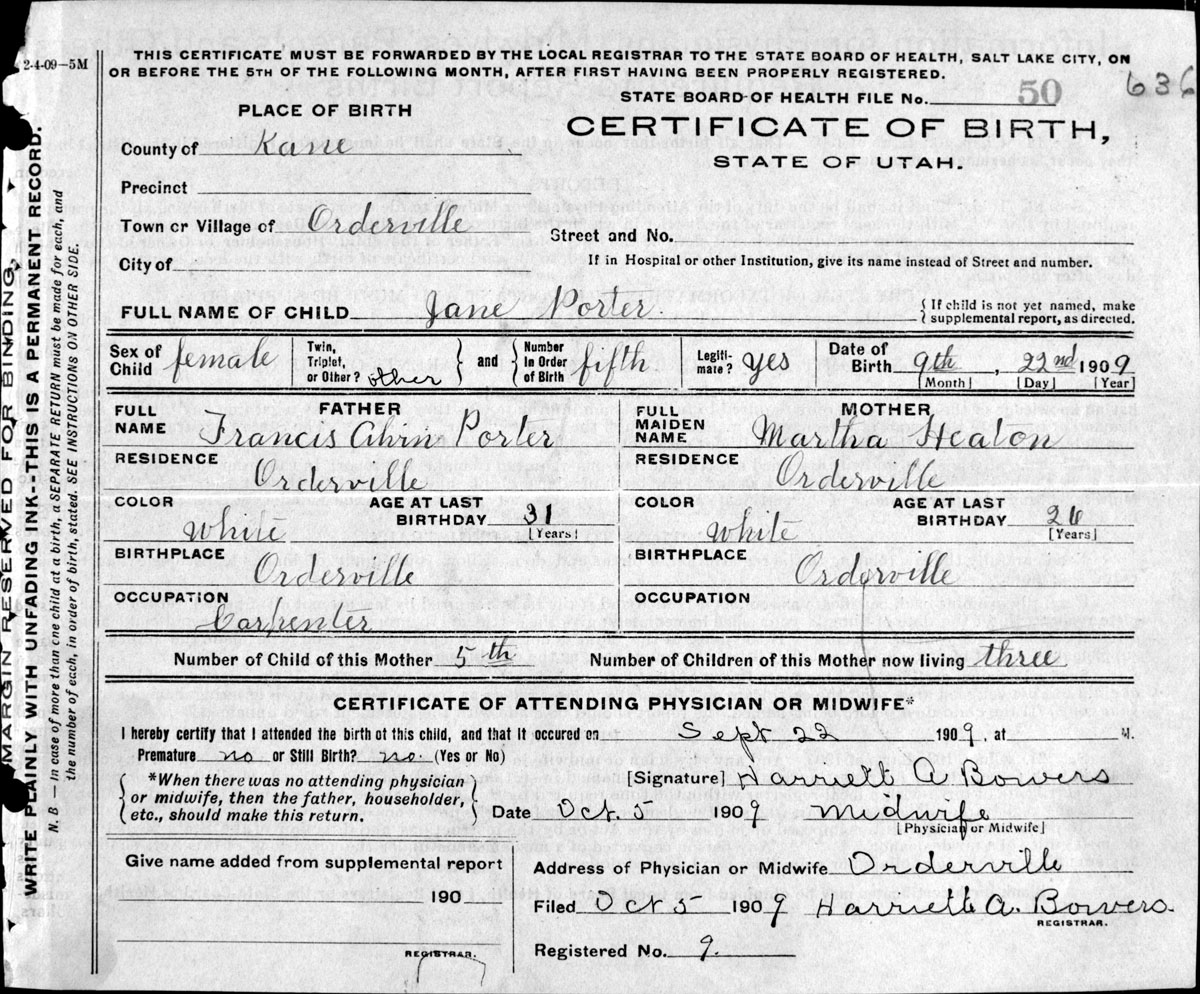 2-4-09—5M
THIS CERTIFICATE MUST BE FORWARDED BY THE LOCAL REGISTRAR TO THE STATE BOARD OF HEALTH, SALT LAKE CITY, ON
OR BEFORE THE 5TH OF THE FOLLOWING MONTH, AFTER FIRST HAVING BEEN PROPERLY REGISTERED.
636
STATE BOARD OF HEALTH FILE No. 50
PLACE OF BIRTH
CERTIFICATE OF BIRTH,
STATE OF UTAH.
County of Kane
Precinct
Town or Village of Orderville
Street and No.
City of
If in Hospital or other Institution, give its name instead of Street and number.
FULL NAME OF CHILD Jane Porter
{If child is not yet named, make
supplemental report, as directed.
Sex of Child female
Twin, Triplet, or Other? other
and
Number in Order of Birth fifth
Legiti-mate? yes
Date of Birth 9th, 22nd 1909
[Month] [Day] [Year]
FATHER
FULL NAME Francis Alvin Porter
RESIDENCE
Orderville
COLOR
White
AGE AT LAST BIRTHDAY 31
[Years]
BIRTHPLACE
Orderville
OCCUPATION
Carpenter
MOTHER
FULL MAIDEN NAME Martha Heaton
RESIDENCE
Orderville
COLOR
White
AGE AT LAST BIRTHDAY 26
[Years]
BIRTHPLACE
Orderville
OCCUPATION
Number of Child of this Mother 5th Number of Children of this Mother now living three
CERTIFICATE OF ATTENDING PHYSICIAN OR MIDWIFE*
I hereby certify that I attended the birth of this child, and that it occured on Sept 22 1909, at M.
Premature no or Still Birth? no (Yes or No)
*When there was no attending physician
or midwife, then the father, householder,
etc., should make this return.
[Signature] Harriett A Bowers
Date Oct. 5 1909 Midwife
[Physician or Midwife]
Give name added from supplemental report
190
REGISTRAR.
Address of Physician or Midwife Orderville
Filed Oct 5 1909 Harriett A. Bowers.
REGISTRAR.
Registered No. 9.
MARGIN RESERVED FOR BINDING,
WRITE PLAINLY WITH UNFADING INK--THIS IS A PERMANENT RECORD.
N. B — In case of more than one child at a birth, a SEPARATE RETURN must be made for each, and
the number of each, in order of birth, stated. SEE INSTRUCTIONS ON OTHER SIDE.